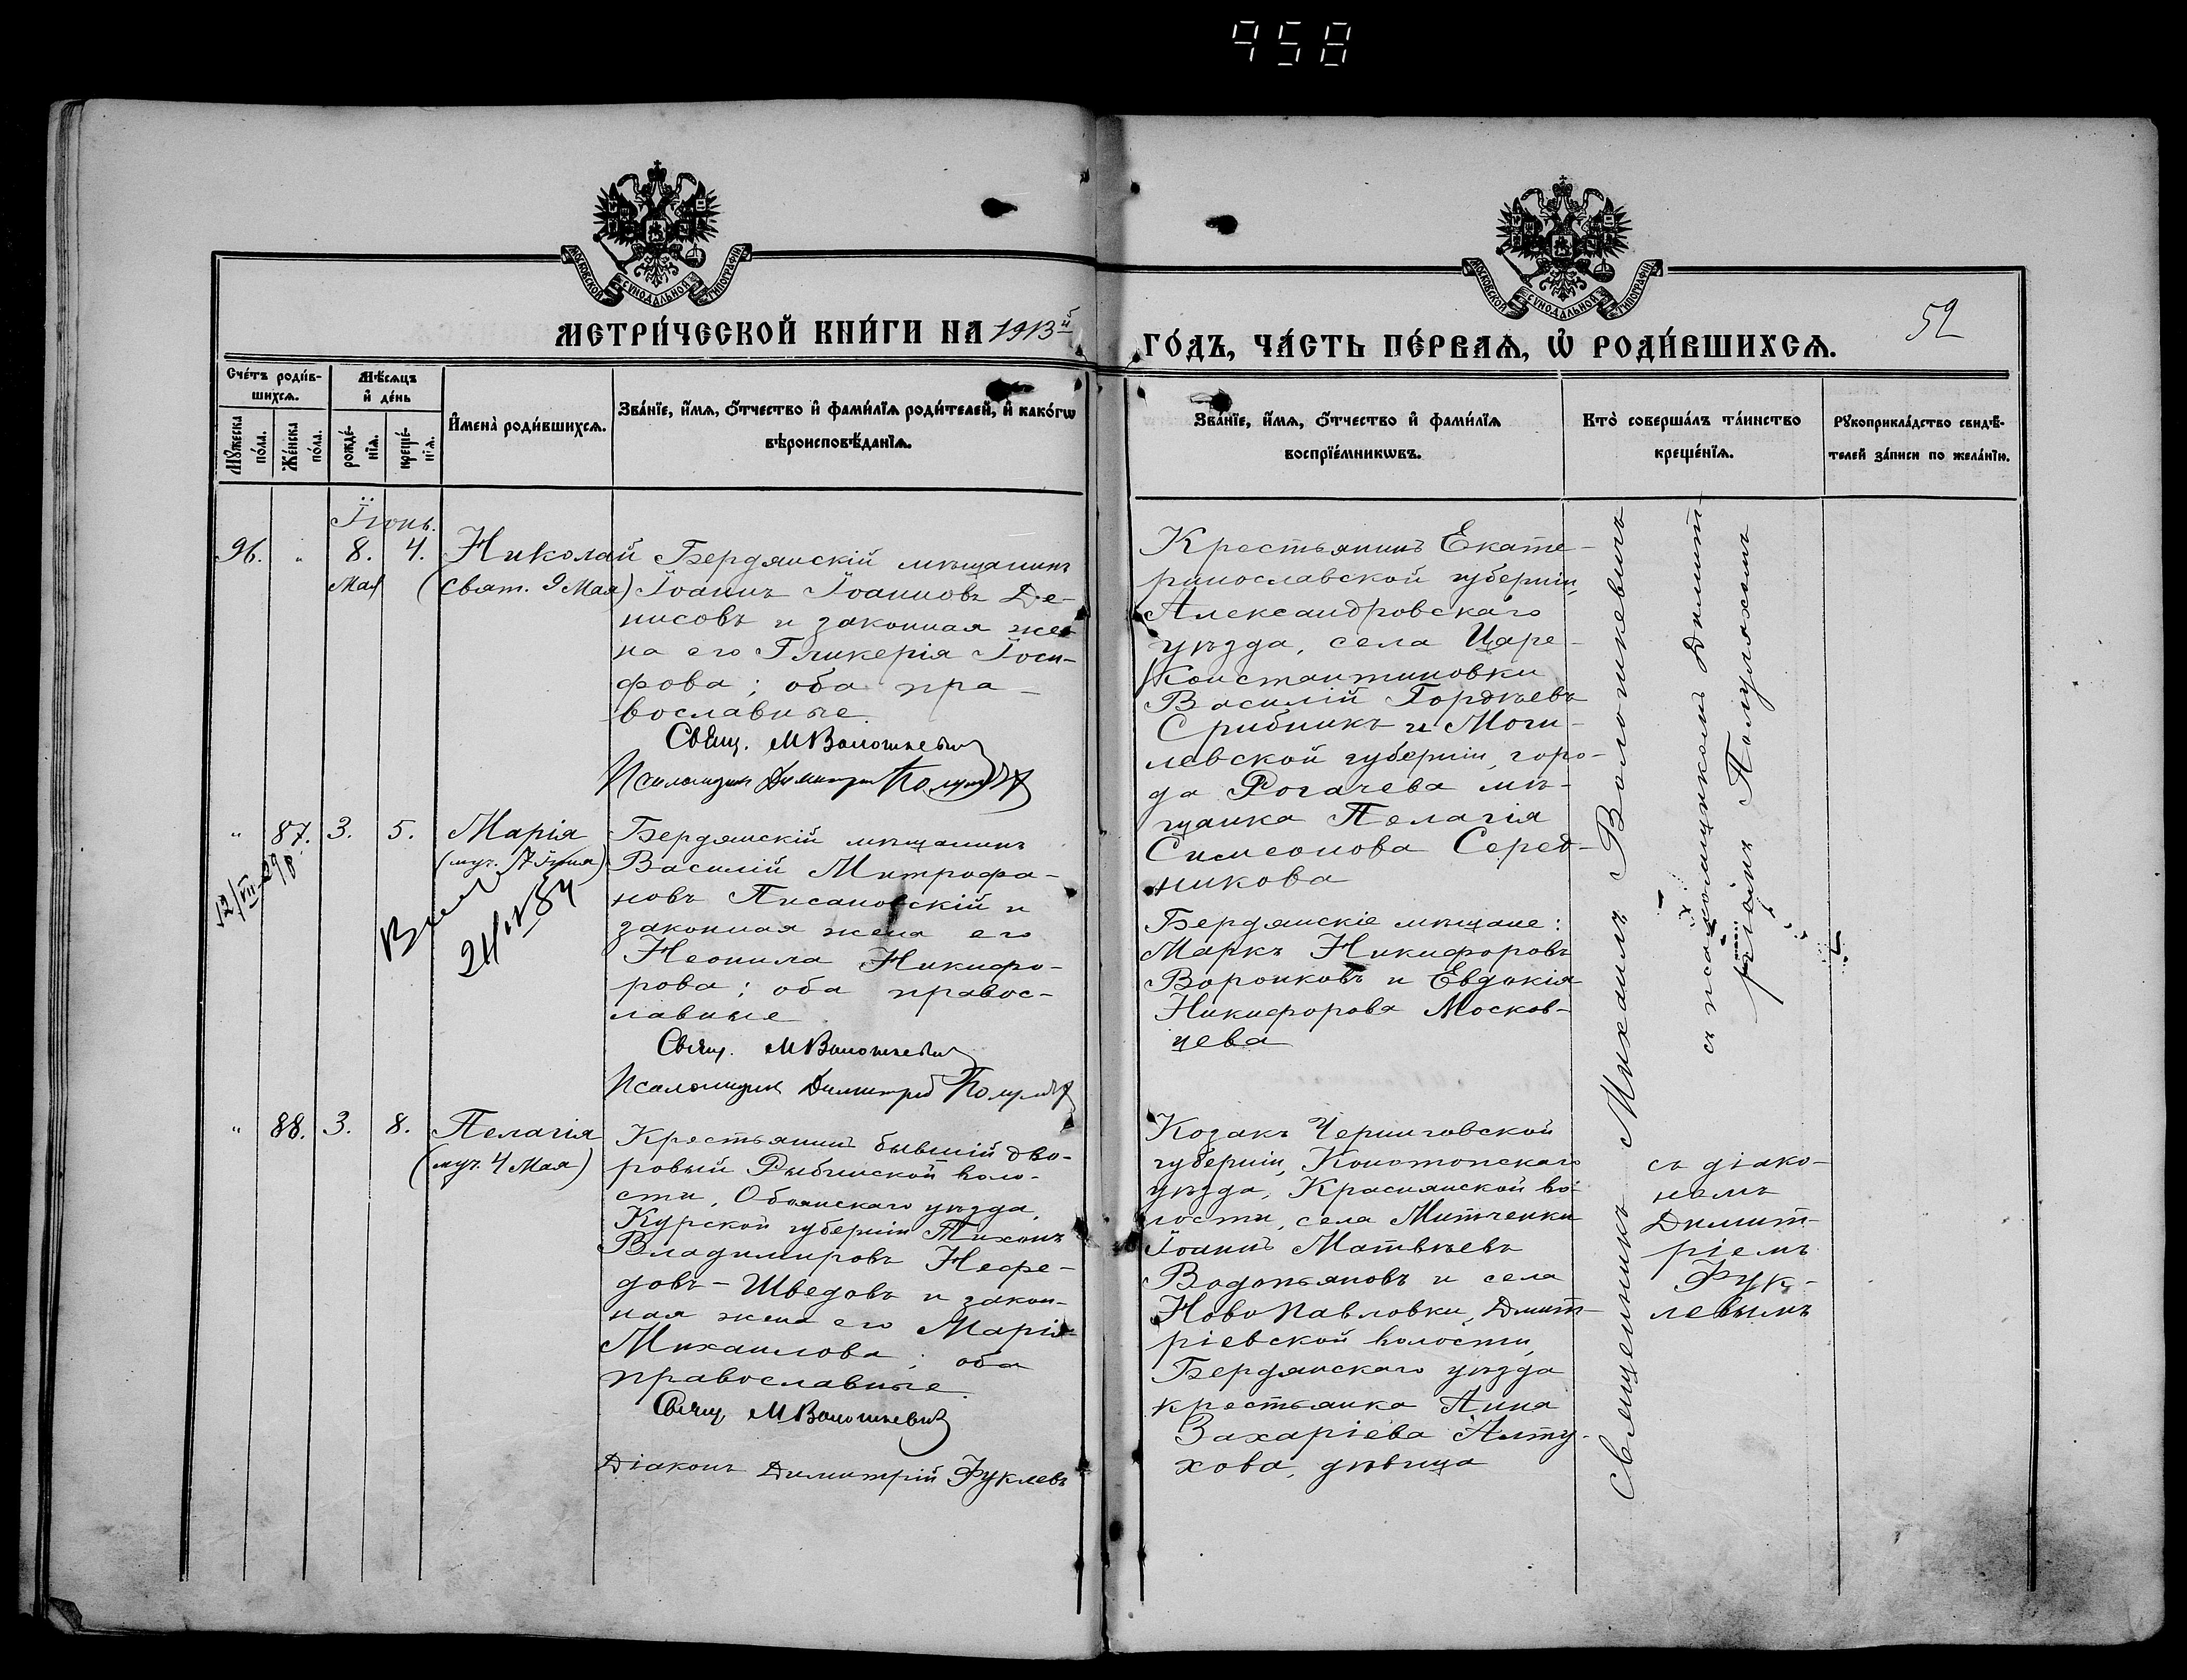 958
МОСКОВСКОЙ СѴНОДАЛЬНОЙ ТИПОГРАФІИ
МОСКОВСКОЙ СѴНОДАЛЬНОЙ ТИПОГРАФІИ
МЕТРИ́ЧЕСКОЙ КНИ́ГИ НА 1913й
ГО́ДЪ, ЧА́СТЬ ПЕ́РВАѦ, Ѽ РОДИ́ВШИХСѦ.
52
Сче́тъ роди́в-
шихсѧ.
Мѣ́сяцъ
и҆ де́нь
Мꙋ́жеска по́ла.
Же́нска по́ла.
рожде́-
нїѧ.
креще́-
нїѧ.
И҆мена̀ роди́вшихсѧ.
Зва́нїе, и҆́мѧ, ѻ҆́тчество и҆ фами́лїѧ роди́телей, и҆ како́гѡ
вѣроисповѣ́данїѧ.
Зва́нїе, и҆́мѧ, ѻ҆́тчество и҆ фами́лїѧ
воспрїе́мникѡвъ.
Кто̀ соверша́лъ та́инство
креще́нїѧ.
Рꙋкоприкла́дство свидѣ́-
телей за́писи по жела́нїю.
Іюнь.
96. " 8. 4. Николай
Мая (Свят. 9 Мая)
Бердянскій мѣщанинъ
Іоаннъ Іоанновъ Де-
нисовъ и законная же-
на его Гликерія Іоси-
фова; оба пра-
вославные.
Свящ. М Волошкевич
Псаломщик Димитрій
Крестьянинъ Екате-
ринославской губерніи,
Александровскаго
уѣзда, села Царе-
Константиновки
Василій Гордѣевъ
Срибникъ и Моги-
левской губерніи, горо-
да Рогачева мѣ-
щанка Пелагія
Симеонова Серед-
никова
" 87. 3. 5. Марія
12/VII-29р.
21/IV 84
Бердянскій мѣщанинъ
Василій Митрофа-
новъ Писановскій и
законная жена его
Неонила Никифо-
рова; оба правос-
лавные
Свящ. М Волошкевич
Псаломщик Димитрій
Бердянскіе мѣщане:
Маркъ Никифоровъ
Воронковъ и Евдокія
Никифорова Москов-
цева
" 88. 3. 8. Пелагія
(муч. 4 Мая)
Крестьянинъ бывшій дво-
ровый Рыбинской воло-
сти, Обоянскаго уѣзда,
Курской губерніи Тихонъ
Владимировъ Нефе-
довъ-Шведовъ и закон-
ная жена его Марія
Михаилова; оба
православные.
Свящ. М Волошкевич
Діаконъ Димитрій Фуклевъ
Козакъ Черниговской
губерніи, Конотопскаго
уѣзда, Краснянской во-
лости, села Митченки
Іоаннъ Матвѣевъ
Водопьяновъ и села
Ново Павловки, Дмит-
ріевской волости,
Бердянскаго уѣзда
крестьянка Анна
Захаріева Алту-
хова, дѣвица
Священникъ Михаилъ Волошкевичъ
съ псаломщикомъ Димит-
ріемъ
съ діако-
номъ
Димит-
ріемъ
Фук-
левымъ